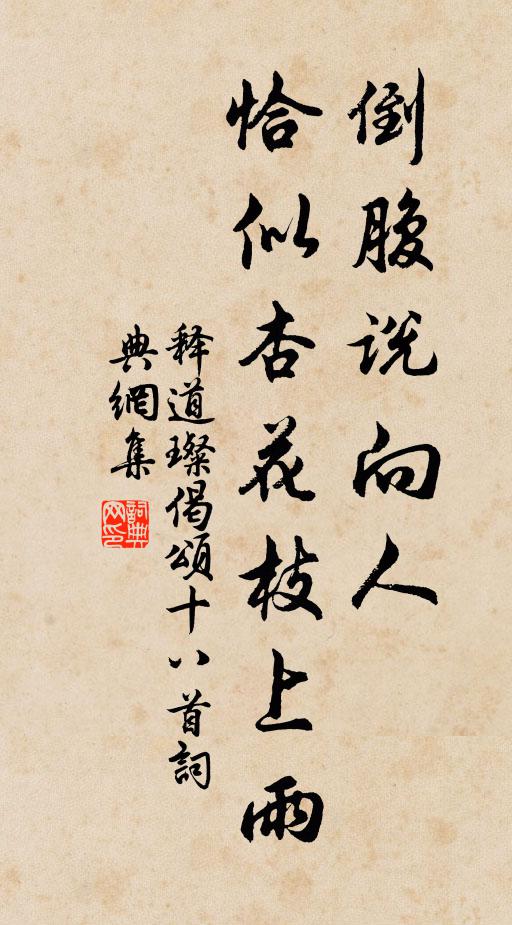 倒腹说向人
恰似杏花枝上雨
释道璨偈颂十八首詞
典網集
詞典网印